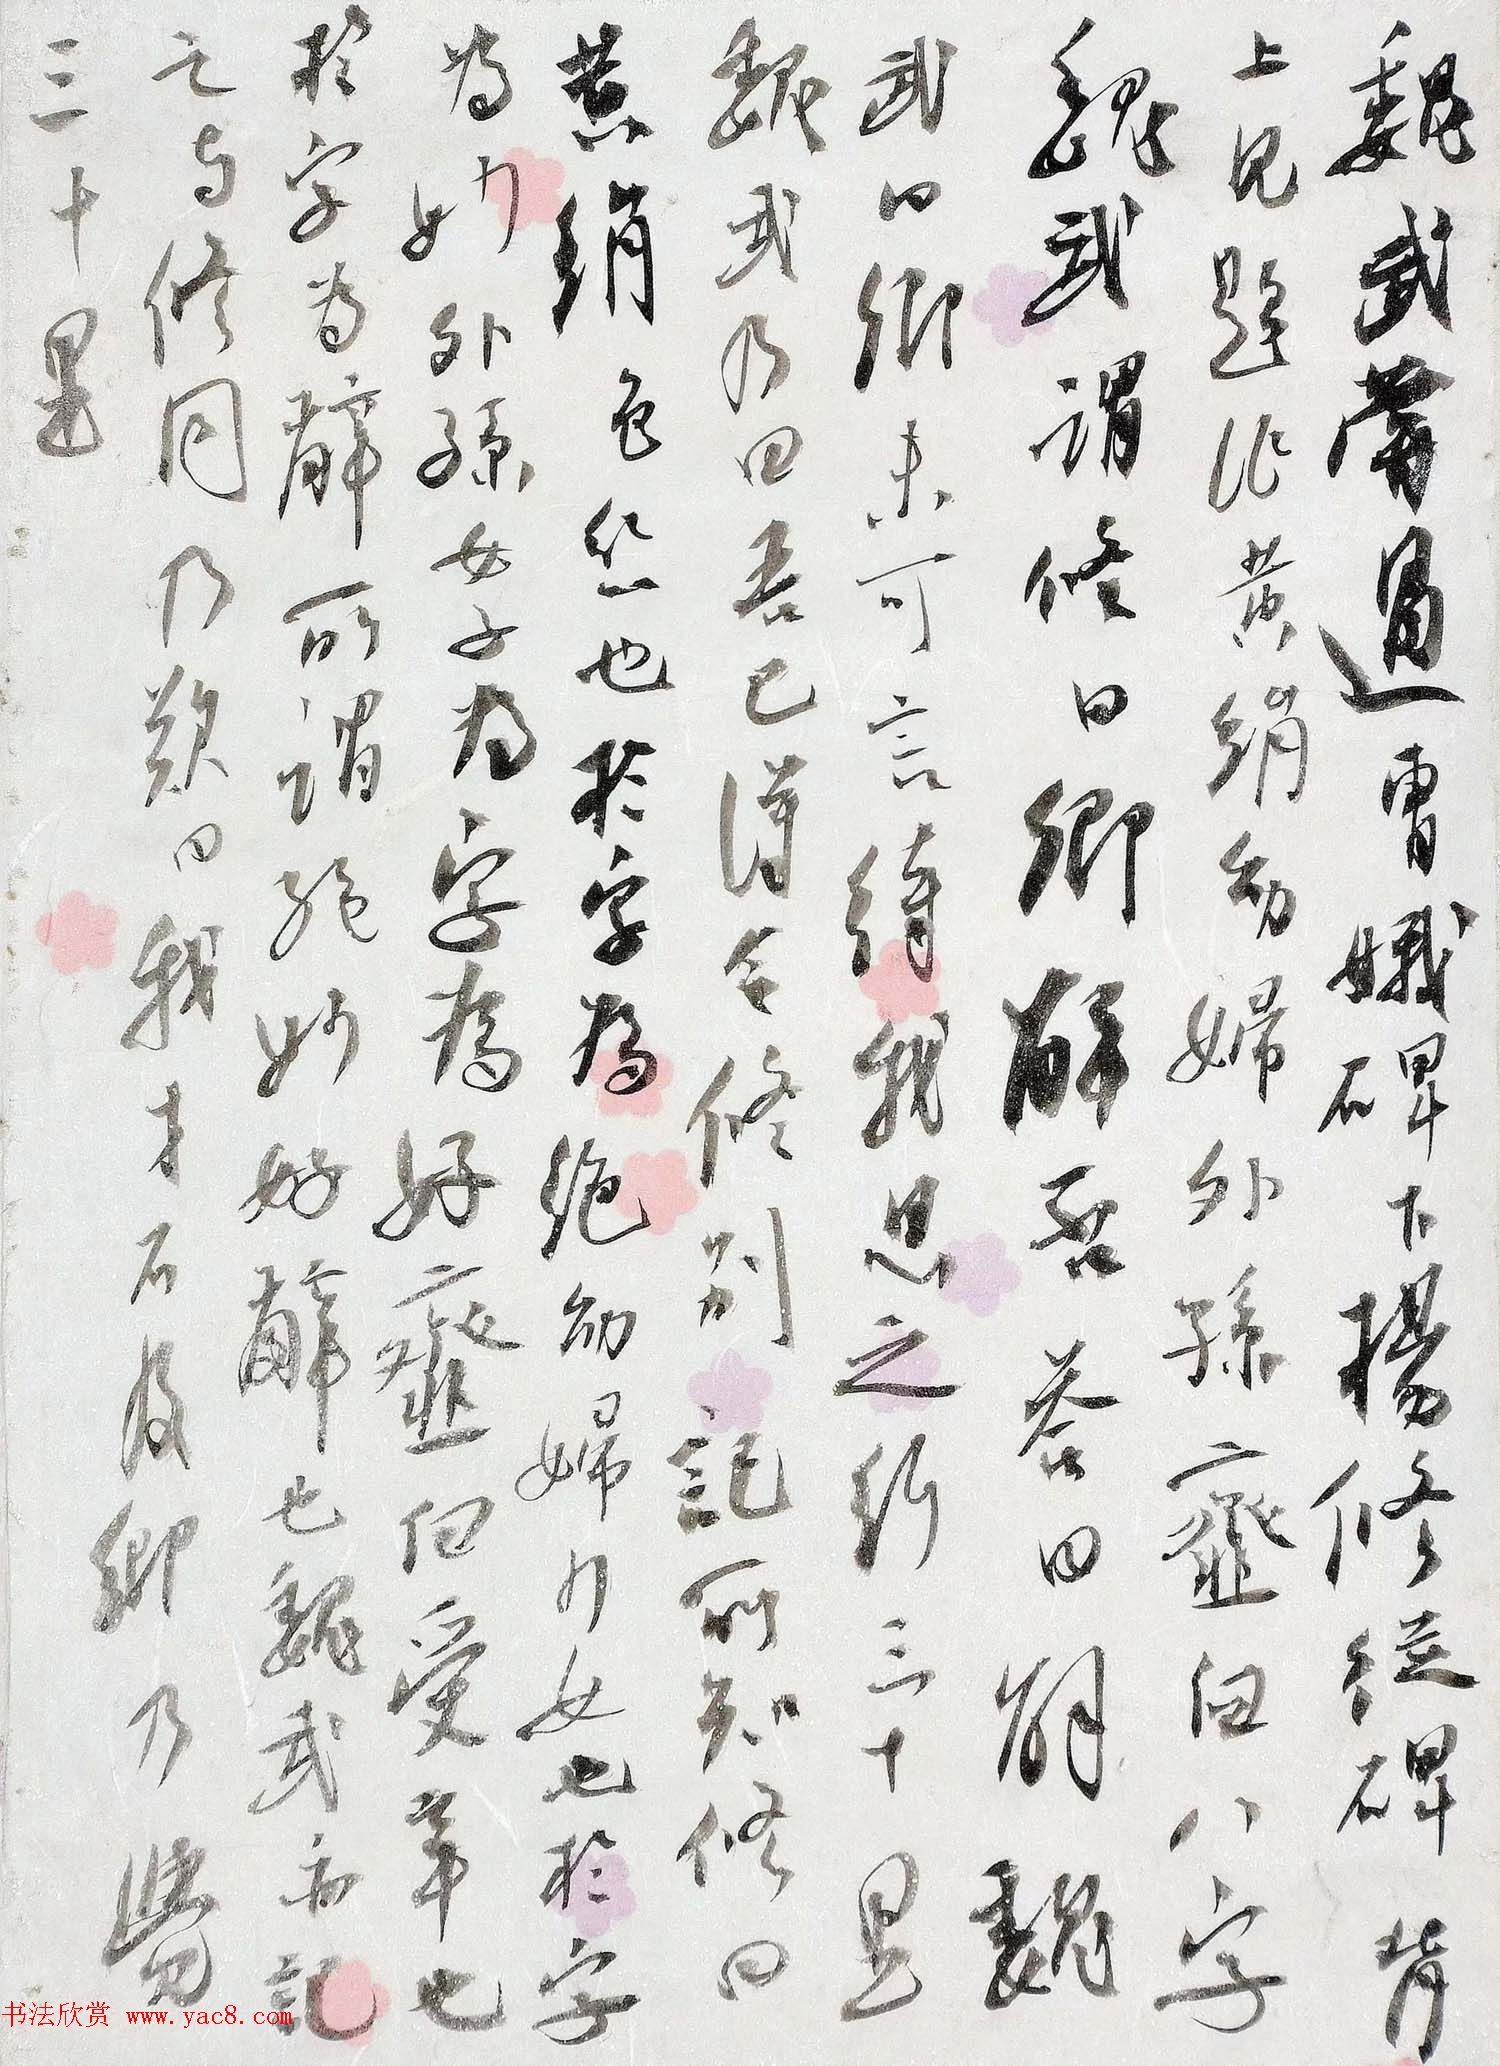 魏武嘗過曹娥碑下楊修從碑背
上見題作黃絹幼婦外孫齏臼八字
魏武謂修曰卿解否荅曰解魏
武曰卿未可言待我思之行三十里
魏武乃曰吾已得令修別記所知修曰
黃絹色絲也於字為絕幼婦少女也於字
為妙外孫女子為字為好齏臼受辛也
於字為辭所謂絕妙好辭也魏武亦記
之与修同乃歎曰我才不及卿乃覺
三十里
书法欣赏 www.yac8.com